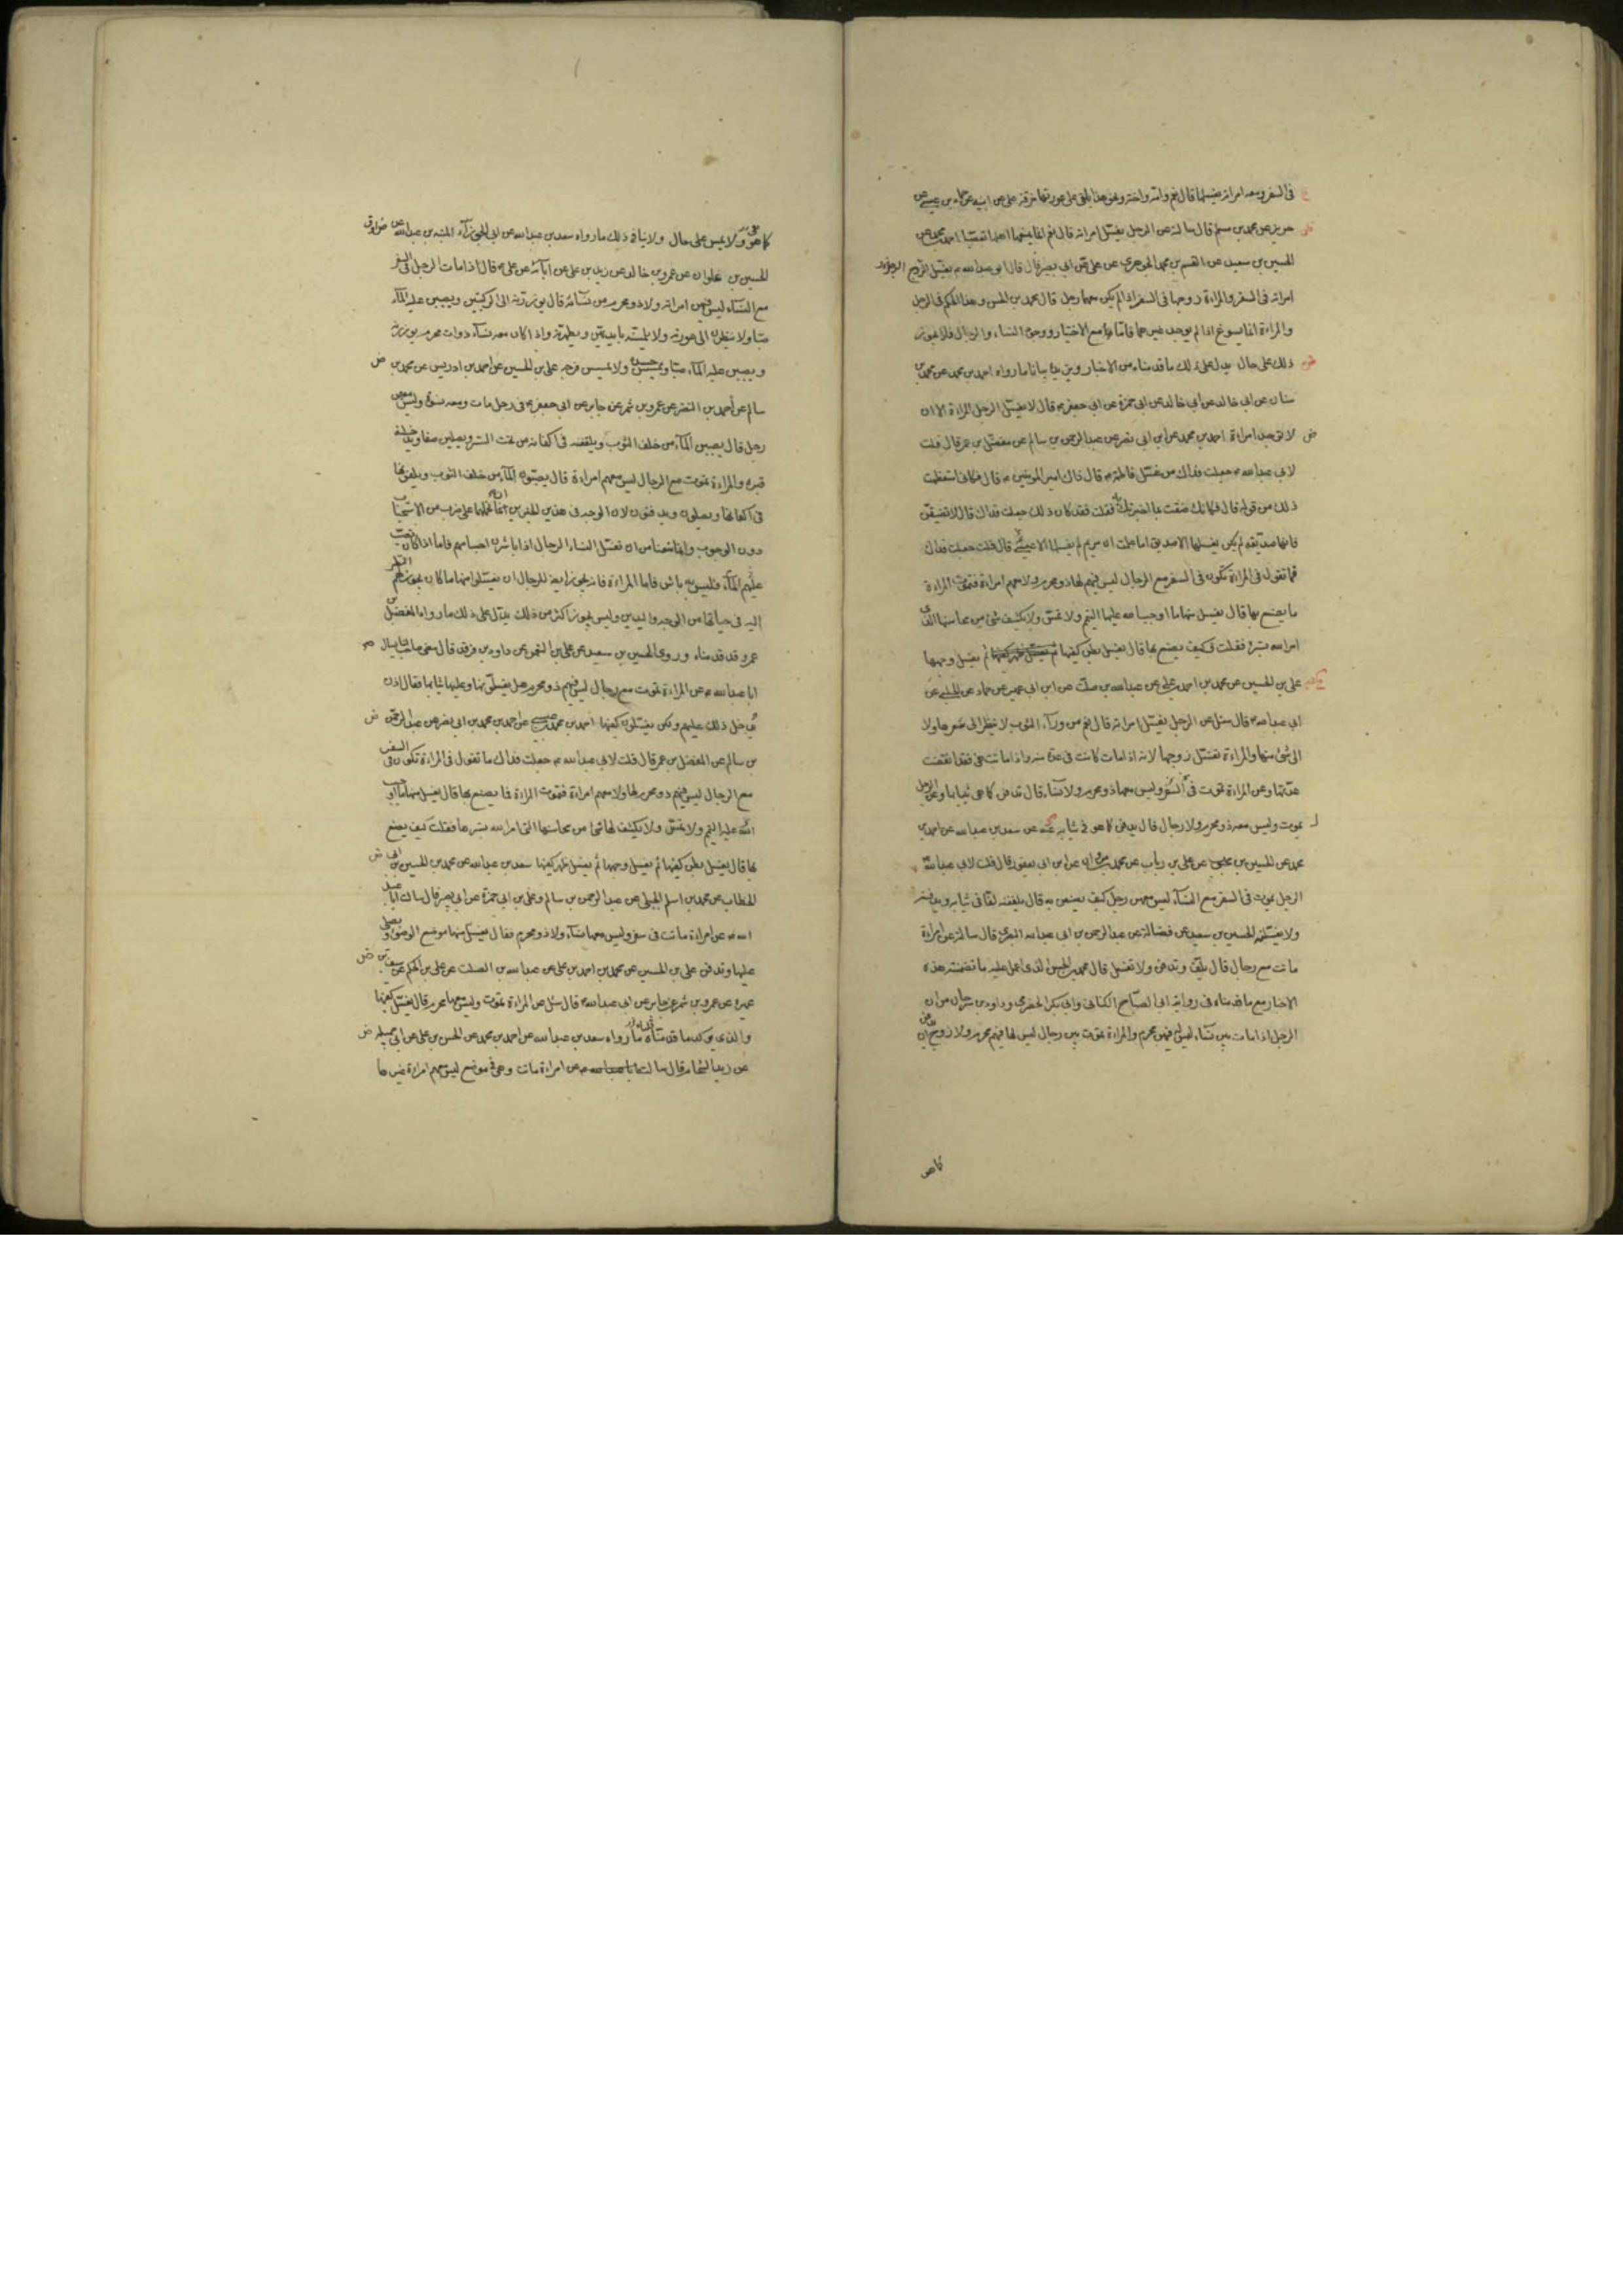 فى السفر ومعه امراته يغسلها قال نعم وامه واخته ونحو هذا يلقى على عورتها خرقة على عن ابيه عن حماد بن عيسى عن
حريز عن محمد بن مسلم قال سالته عن الرجل يغسل امراته قال نعم انما يمنعها اهلها تعصبا احمد بن محمد عن
الحسين بن سعيد عن القسم بن محمد الجوهرى عن على عن ابى بصير قال قال ابو عبدالله يغسل الزوج
امراته فى السفر والمراة زوجها فى السفر اذا لم يكن معها رجل قال محمد بن الحسن وهذا الحكم فى الرجل
والمراءة انما يسوغ اذا لم يوجد غيرهما فاما مع الاختيار ووجود النساء والرجال فلا يجوز
ذلك على حال يدل على ذلك ما قدمناه من الاخبار ويزيده بيانا ما رواه احمد بن محمد عن محمد بن
سنان عن ابى خالد عن ابى حمزة عن ابى جعفر قال لا يغسل الرجل المراة الا ان
لا توجد امراءة احمد بن محمد عن ابن ابى نصر عن عبد الرحمن بن سالم عن مفضل بن عمر قال قلت
لابى عبدالله جعلت فداك من غسل فاطمة قال ذاك امير المومنين قال فكانى استعظمت
ذلك من قوله قال فكانك ضقت بما اخبرتك به فقلت قد كان ذلك جعلت فداك قال لا تضيقن
فانها صديقة لم يكن يغسلها الا صديق اما علمت ان مريم لم يغسلها الا عيسى قال قلت جعلت فداك
فما تقول فى المراءة تكون فى السفر مع الرجال ليس فيهم لها ذو محرم ولا معهم امراءة فتموت المراءة
ما يصنع بها قال يغسل منها ما اوجب الله عليها التيمم ولا تمس ولا يكشف شئ من محاسنها الذى
امر الله بستره فقلت فكيف يصنع بها قال يغسل بطن كفيها ثم يغسل وجهها
على بن الحسين عن محمد بن احمد بن على عن عبدالله بن صلت عن ابن ابى عمير عن حماد عن الحلبى عن
ابى عبدالله قال سئل عن الرجل يغسل امراته قال نعم من وراء الثوب لا ينظر الى شعرها ولا
الى شئ منها والمراءة تغسل زوجها لانه اذا مات كانت فى عدة منه واذا ماتت هى فقد انقضت
عدتها وعن المراءة تموت فى السفر وليس معها ذو محرم ولا نساء قال تدفن كما هى بثيابها وعن الرجل
يموت وليس معه ذو محرم ولا رجال قال يدفن كما هو فى ثيابه عنه عن سعد بن عبدالله عن احمد بن
محمد عن الحسين بن عن على بن رباب عن محمد بن مروان عن ابن ابى يعفور قال قلت لابى عبدالله
الرجل يموت فى السفر مع النساء ليس معهن رجل كيف يصنعن به قال يلففنه لفا فى ثيابه ويدفنه
ولا يغسلنه الحسين بن سعيد عن فضالة عن عبد الرحمن بن ابى عبدالله البصرى قال سالته عن امراءة
ماتت مع رجال قال تلف وتدفن ولا تغسل قال محمد بن الحسن الذى اعمل عليه ما تضمنته هذه
الاخبار مع ما قدمناه فى رواية ابى الصباح الكنانى وابى بكر الحضرمى وداود بن سرحان من ان
الرجل اذا مات بين نساء ليس له فيهن محرم والمراءة تموت بين رجال ليس لها فيهم محرم ولا زوج ان
كما هى
كما هو ولا يمس على حال ولا ينافى ذلك ما رواه سعد بن عبدالله عن ابى الجوزآء المنبه بن عبدالله عن
الحسين بن علوان عن عمرو بن خالد عن زيد بن على عن ابآئه عن على قال اذا مات الرجل فى السفر
مع النسآء ليس فيهن امراته ولا ذو محرم من نسآئه قال يوزرنه الى الركبتين ويصببن عليه المآء
صبا ولا ينظرن الى عورته ولا يلمسنه بايديهن ويطهرنه واذا كان معه نسآء ذوات محرم يوزرنه
ويصببن عليه المآء صبا ويمسسن جسده ولا يمسسن فرجه على بن الحسين عن احمد بن ادريس عن محمد بن
سالم عن احمد بن النضر عن عمرو بن شمر عن جابر عن ابى جعفر فى رجل مات ومعه نسوة وليس معهن
رجل قال يصببن المآء من خلف الثوب ويلففنه فى اكفانه من تحت الستر ويصلين صفا ويدخلنه
قبره والمراءة تموت مع الرجال ليس معهم امراءة قال يصبون المآء من خلف الثوب ويلفونها
فى اكفانها ويصلون ويدفنون لان الوجه فى هذين الخبرين ان نحملهما على ضرب من الاستحباب
دون الوجوب وانما منعنا من ان تغسل النساء الرجال اذا باشرن اجسامهم فاما اذا كان يصب
عليهم المآء فليس به باس فاما المراءة فانه يجوز ايضا للرجال ان يغسلوا منها ما كان يجوز لهم النظر
اليه فى حياتها من الوجه واليدين وليس يجوز اكثر من ذلك يدل على ذلك ما رواه المفضل بن
عمر وقد قدمناه وروى الحسين بن سعيد عن على بن النعمان عن داود بن فرقد قال سمعت صاحبا لنا يسال
ابا عبدالله عن المراءة تموت مع رجال ليس فيهم ذو محرم هل يغسلونها وعليها ثيابها فقال اذن
يدخل ذلك عليهم ولكن يغسلون كفيها احمد بن محمد بن عن احمد بن محمد بن ابى نصر عن عبد الرحمن
بن سالم عن المفضل بن عمر قال قلت لابى عبدالله جعلت فداك ما تقول فى المراءة تكون فى السفر
مع الرجال ليس فيهم ذو محرم لها ولا معهم امراءة فتموت المراة فما يصنع بها قال يغسل منها ما اوجب
الله عليه التيمم ولا تمس ولا يكشف لها شئ من محاسنها التى امر الله بسترها فقلت كيف يصنع
بها قال يغسل بطن كفيها ثم يغسل وجهها ثم يغسل ظهر كفيها سعد بن عبدالله عن محمد بن الحسين بن ابى
الخطاب عن محمد بن اسلم الجبلى عن عبد الرحمن بن سالم وعلى بن ابى حمزة عن ابى بصير قال سالت ابا عبد
الله عن امراءة ماتت فى سفر وليس معها نسآء ولا ذو محرم فقال يغسل منها موضع الوضوء ويصلى
عليها وتدفن على بن الحسين عن محمد بن احمد بن على عن عبدالله بن الصلت عن على بن الحكم عن سيف بن
عميرة عن عمرو بن شمر عن جابر عن ابى عبدالله قال سئل عن المراءة تموت وليس معها محرم قال يغسل كفيها
والذى يوكد ما قدمناه ما رواه سعد بن عبدالله عن احمد بن محمد عن الحسن بن على عن ابى جميله
عن زيد الشحام قال سالت ابا عبدالله عن امراءة ماتت وهى فى موضع ليس معهم امراءة غيرها